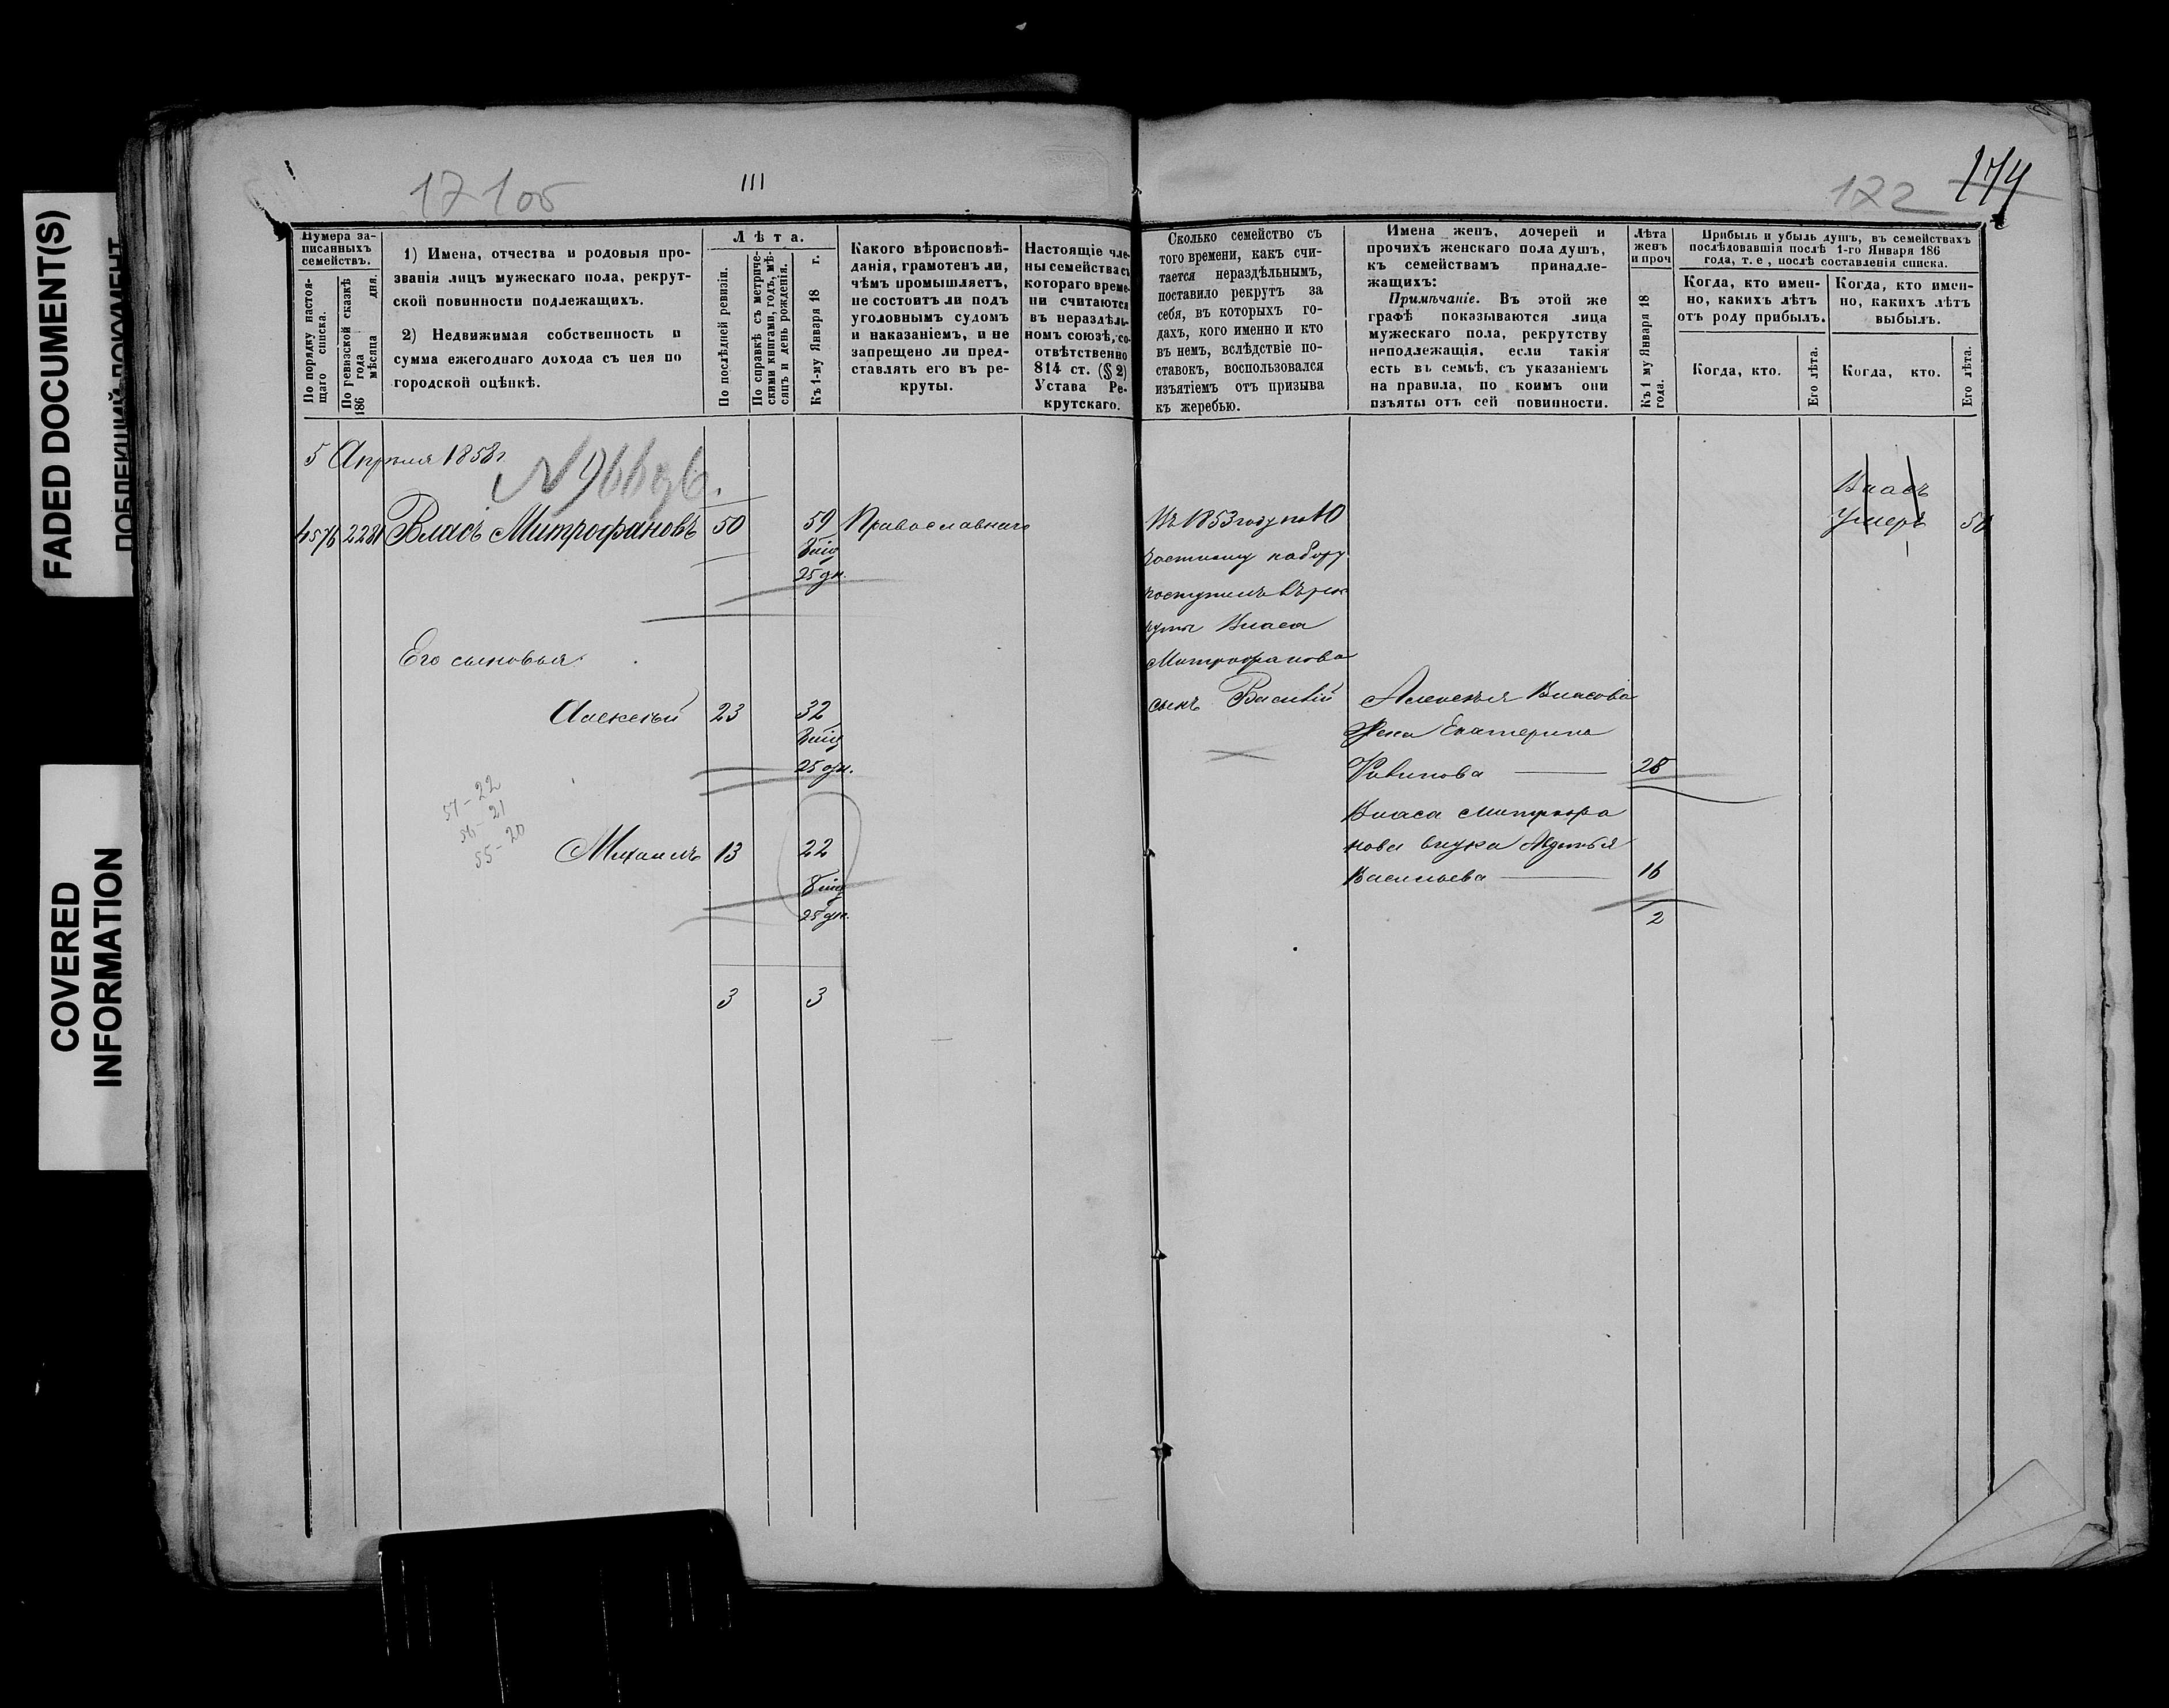 FADED DOCUMENT(S)
COVERED
INFORMATION
III
122
174
Нумера за-
писанныхъ
семействъ.
По порядку настоя-
щаго списка.
По ревизской сказкѣ
186 года
мѣсяца дня.
1) Имена, отчества и родовыя про-
званія лицъ мужескаго пола, рекрут-
ской повинности подлежащихъ.
2) Недвижимая собственность и
сумма ежегоднаго дохода съ нея по
городской оцѣнкѣ.
Лѣта.
По послѣдней ревизіи.
По справкѣ съ метриче-
скими книгами, годъ, мѣ-
сяцъ и день рожденія.
Къ 1-му Января 18 г.
Какого вѣроисповѣ-
данія, грамотенъ ли,
чѣмъ промышляетъ,
не состоитъ ли подъ
уголовнымъ судомъ
и наказаніемъ, и не
запрещено ли пред-
ставлять его въ ре-
круты.
Настоящіе чле-
ны семейства съ
котораго време-
ни считаются
въ нераздѣль-
номъ союзѣ, со-
отвѣтственно
814 ст. (§ 2)
Устава Ре-
крутскаго.
Сколько семейство съ
того времени, какъ счи-
тается нераздѣльнымъ,
поставило рекрутъ за
себя, въ которыхъ го-
дахъ, кого именно и кто
въ немъ, вслѣдствіе по-
ставокъ, воспользовался
изъятіемъ отъ призыва
къ жеребью.
Имена женъ, дочерей и
прочихъ женскаго пола душъ,
къ семействамъ принадле-
жащихъ:
Примѣчаніе. Въ этой же
графѣ показываются лица
мужескаго пола, рекрутству
неподлежащія, если такія
есть въ семьѣ, съ указаніемъ
на правила, по коимъ они
изъяты отъ сей повинности.
Лѣта
женъ
и проч
Къ 1 му Января 18
года.
Прибыль и убыль душъ, въ семействахъ
послѣдовавшія послѣ 1-го Января 186
года, т. е., послѣ составленія списка.
Когда, кто имен-
но, какихъ лѣтъ
отъ роду прибылъ.
Когда, кто имен-
но, какихъ лѣтъ
выбылъ.
Когда, кто.
Его лѣта.
Когда, кто.
Его лѣта.
5 Апрѣля 1858г.
Власъ Митрофановъ 50 59 Православнаго
25 дн.
Его сыновья
Алексѣй 23 32
25 дн.
57 - 22
56 - 21
55 - 20
Михаилъ 13 22
25 дн.
3 3
Въ 1853 году по 10
частному набору
поступилъ въ рек
руты Власа
Митрофанова
сынъ Василій
Алексѣя Власова
Жена Екатерина
28
Власа Митрофа
нова внука Авдотья
Васильева 16
2
Власъ
Умеръ